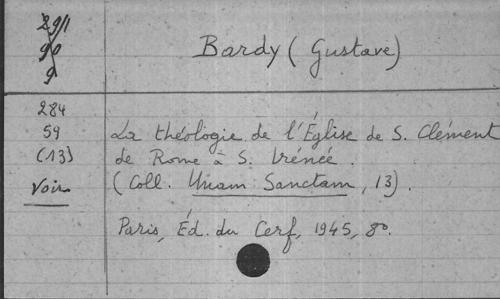 Bardy (Gustave)
284
59
(13)
Voir
La théologie de l'Église de S. Clément
de Rome à S. Irénée.
(Coll. Unam Sanctam, 13).
Paris, Éd. du Cerf, 1945, 8º.